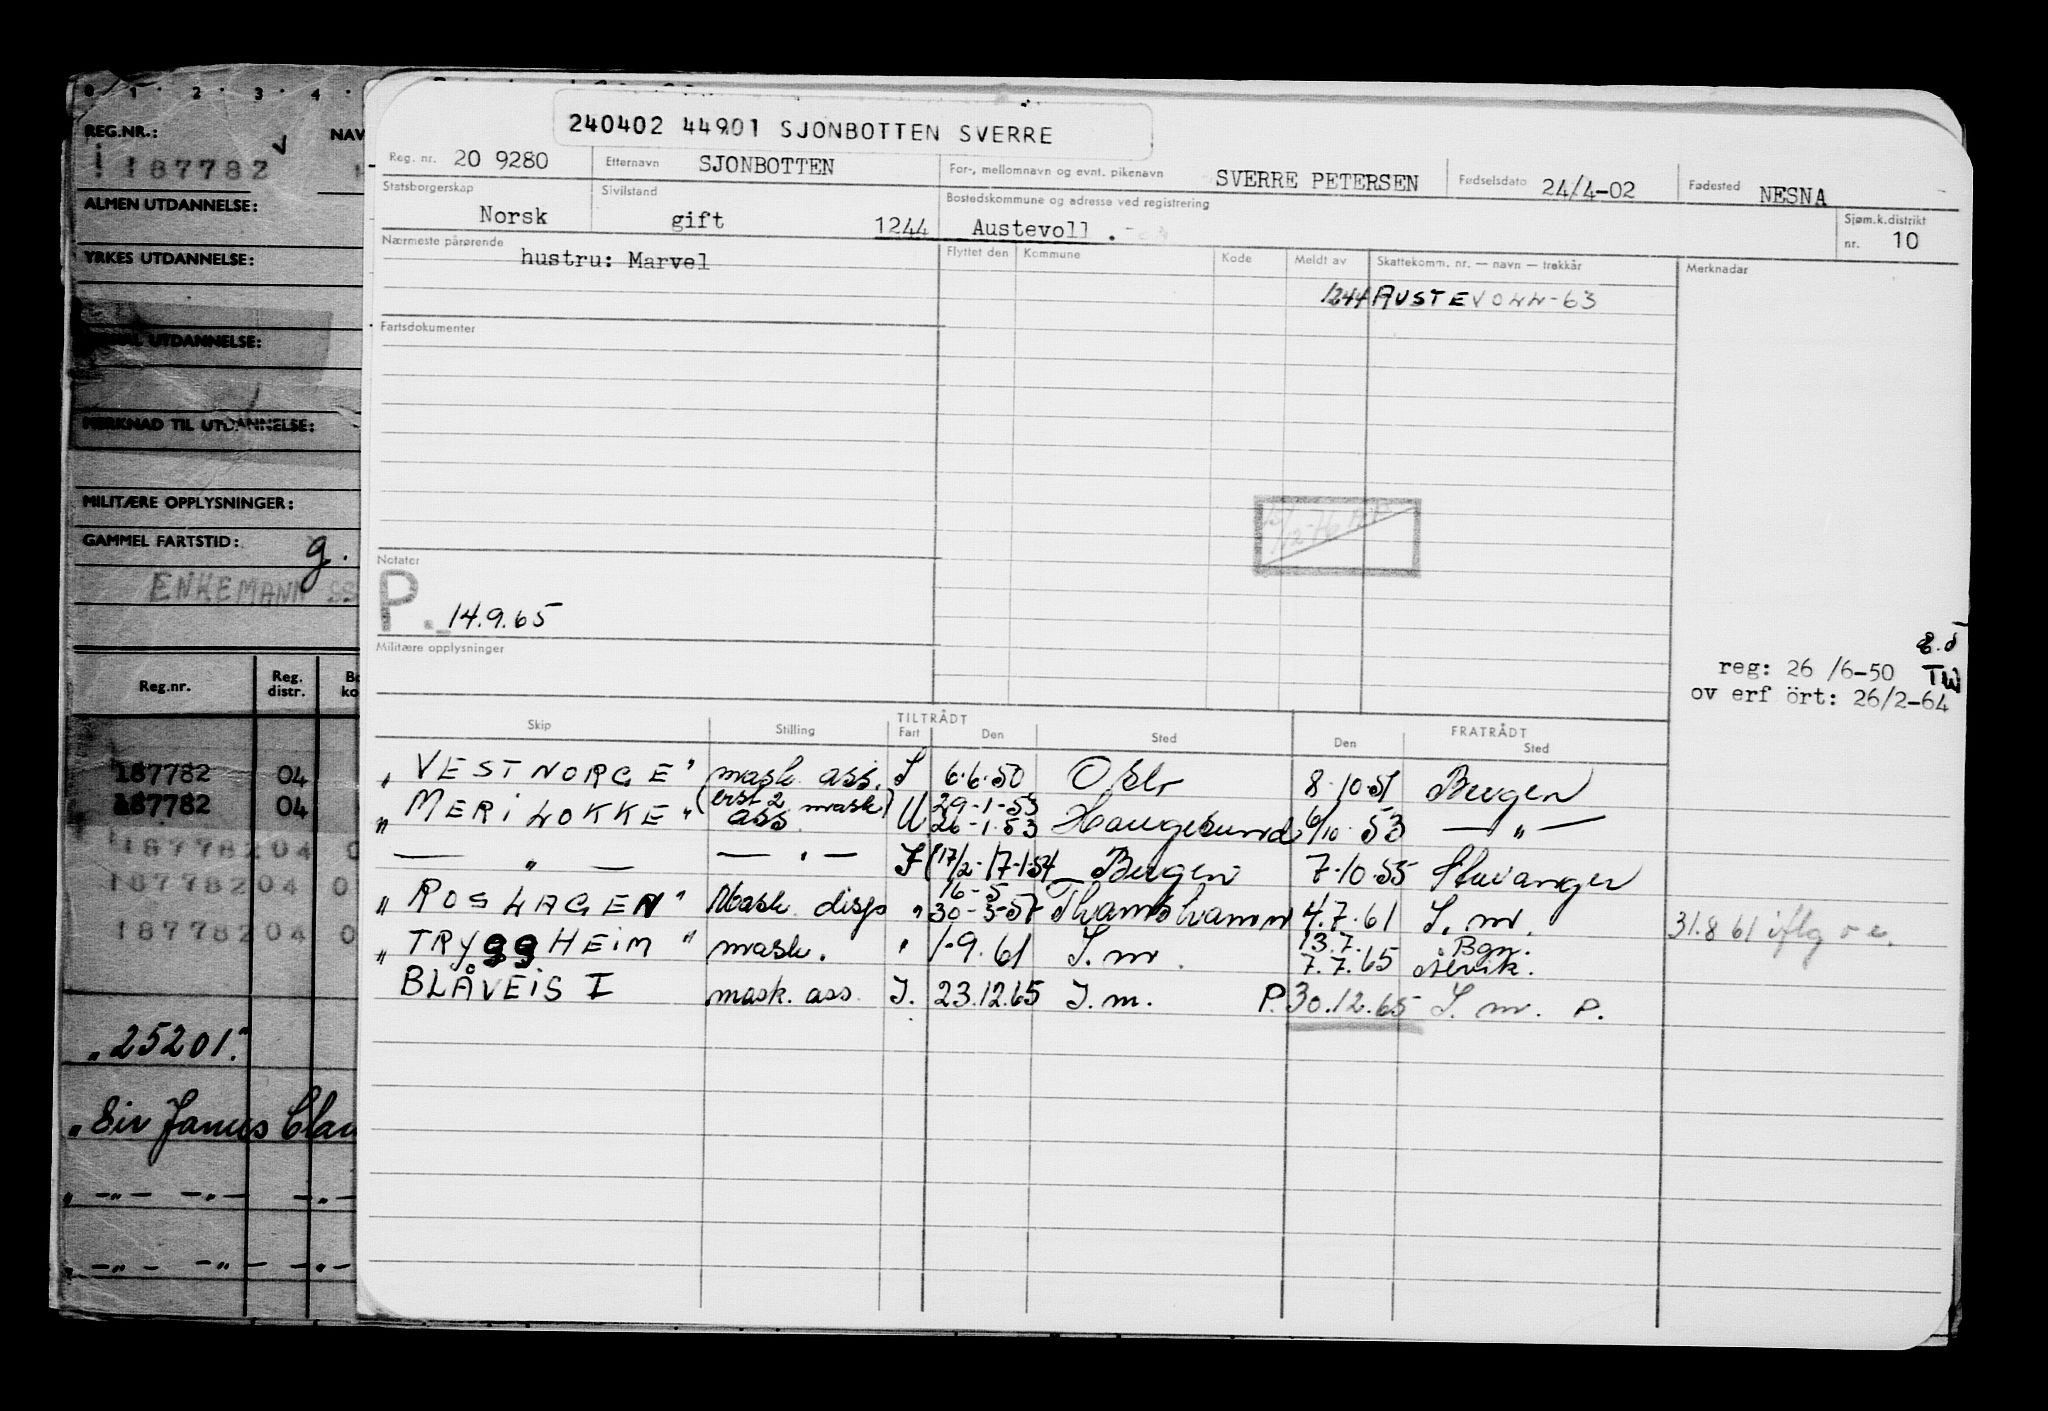 0 1 2 3 4
REG.NR.: NAV
187782
ALMEN UTDANNELSE:
YRKES UTDANNELSE:
UTDANNELSE:
MERKNAD TIL UTDANNELSE:
MILITÆRE OPPLYSNINGER:
GAMMEL FARTSTID: g.
ENKEMANN
Reg.nr. Reg. distr.
187782 04
187782 04
187782 04 0
187782 04 0
187782 04 0
"25201."
"Sir James Clar
240402 44901 SJONBOTTEN SVERRE
Reg. nr. 20 9280 Etternavn SJONBOTTEN For-, mellomnavn og evnt. pikenavn SVERRE PETERSEN Fødselsdato 24/4-02 Fødested NESNA
Statsborgerskap Norsk Sivilstand gift 1244 Bostedskommune og adresse ved registrering Austevoll . Sjøm.k.distrikt nr. 10
Nærmeste pårørende hustru: Marvel Flyttet den Kommune Kode Meldt av Skattekomm. nr. — navn — trekkår Merknader
1244 AUSTEVOLL-63
Fartsdokumenter
Notater
P. 14.9.65
Militære opplysninger
reg: 26 /6-50 TW
ov erf ört: 26/2-64
Skip Stilling TILTRÅDT Fart Den Sted FRATRÅDT Den Sted
"VESTNORGE" mask. ass. 6.6.50 Oslo 8.10.51 Bergen
"MERILOKKE" (erst 2 mask) ass U 29-1-53 26-1.53 Haugesund 6/10.53 — " —
— " — — " — 17-1-54 Bergen 7.10.55 Stavanger
"ROSLAGEN" Mask. disp " 16-5 30-3-57 4.7.61 S. m. 31.8 61 iflg
"TRYggHEIM" mask. " 1-9.61 S. m. 13.7. 7.7.65 Bgn.
BLÅVEIS I mask. ass. I. 23.12.65 I. m. P. 30.12.65 S. m. P.